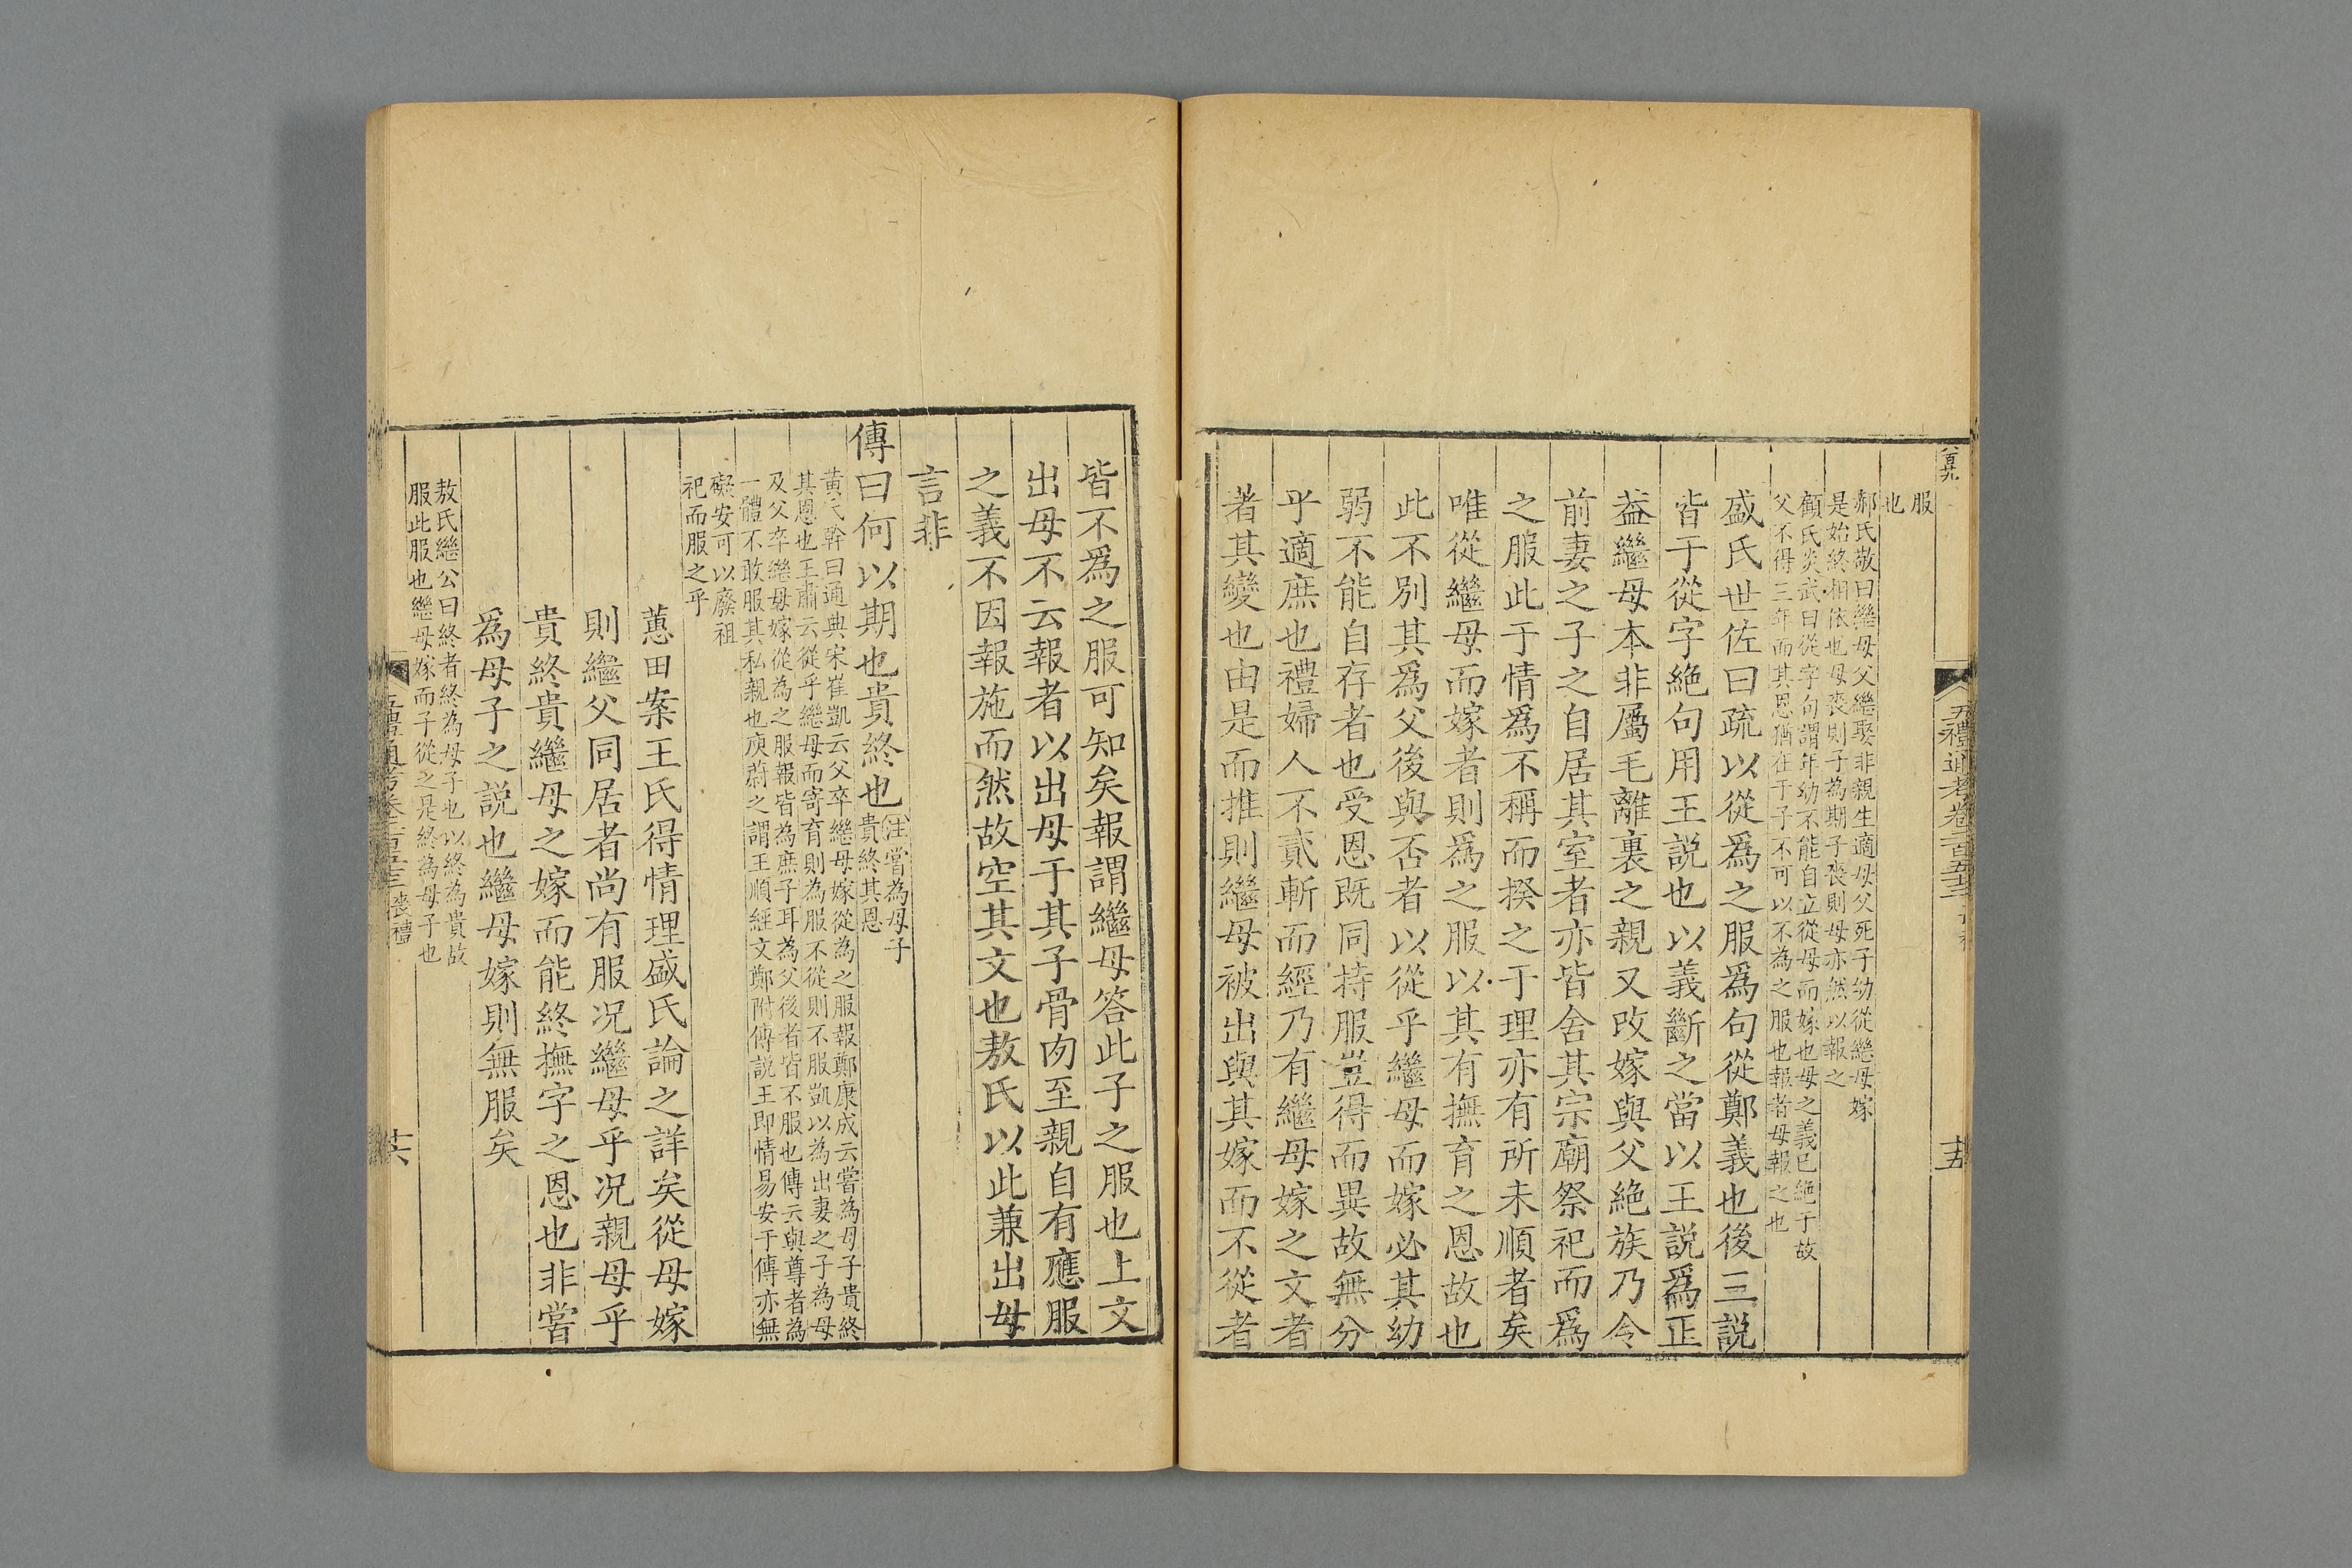 服
也
郝氏敬曰繼母父繼娶非親生適母父死子幼從繼母嫁
是始終相依也母喪則子為期子喪則母亦然以報之
顧氏炎武曰從字句謂年幼不能自立從母而嫁也母之義已絕于故
父不得三年而其恩猶在于子不可以不為之服也報者母報之也
盛氏世佐曰疏以從爲之服爲句從鄭義也後三説
皆于從字絶句用王説也以義斷之當以王説爲正
葢繼母本非屬毛離裏之親又改嫁與父絶族乃令
前妻之子之自居其室者亦皆舍其宗廟祭祀而爲
之服此于情爲不稱而揆之于理亦有所未順者矣
唯從繼母而嫁者則爲之服以其有撫育之恩故也
此不别其爲父後與否者以從乎繼母而嫁必其幼
弱不能自存者也受恩既同持服豈得而異故無分
乎適庶也禮婦人不貳斬而經乃有繼母嫁之文者
著其變也由是而推則繼母被出與其嫁而不從者
五禮通考卷二百五十三
十五
皆不爲之服可知矣報謂繼母答此子之服也上文
出母不云報者以出母于其子骨肉至親自有應服
之義不因報施而然故空其文也敖氏以此兼出母
言非
傳曰何以期也貴終也注嘗為母子
貴終其恩
黃氏榦曰通典宋崔凱云父卒繼母嫁從為之服報鄭康成云嘗為母子貴終
其恩也王肅云從乎繼母而寄育則為服不從則不服凱以為出妻之子為母
及父卒繼母嫁從為之服報皆為庶子耳為父後者皆不服也傳云與尊者為
一體不敢服其私親也庾蔚之謂王順經文鄭附傳説王即情易安于傳亦無
礙安可以廢祖
祀而服之乎
蕙田案王氏得情理盛氏論之詳矣從母嫁
則繼父同居者尚有服况繼母乎况親母乎
貴終貴繼母之嫁而能終撫字之恩也非嘗
爲母子之説也繼母嫁則無服矣
敖氏繼公曰終者終為母子也以終為貴故
服此服也繼母嫁而子從之是終為母子也
五禮通考卷二百五十三 喪禮
十六